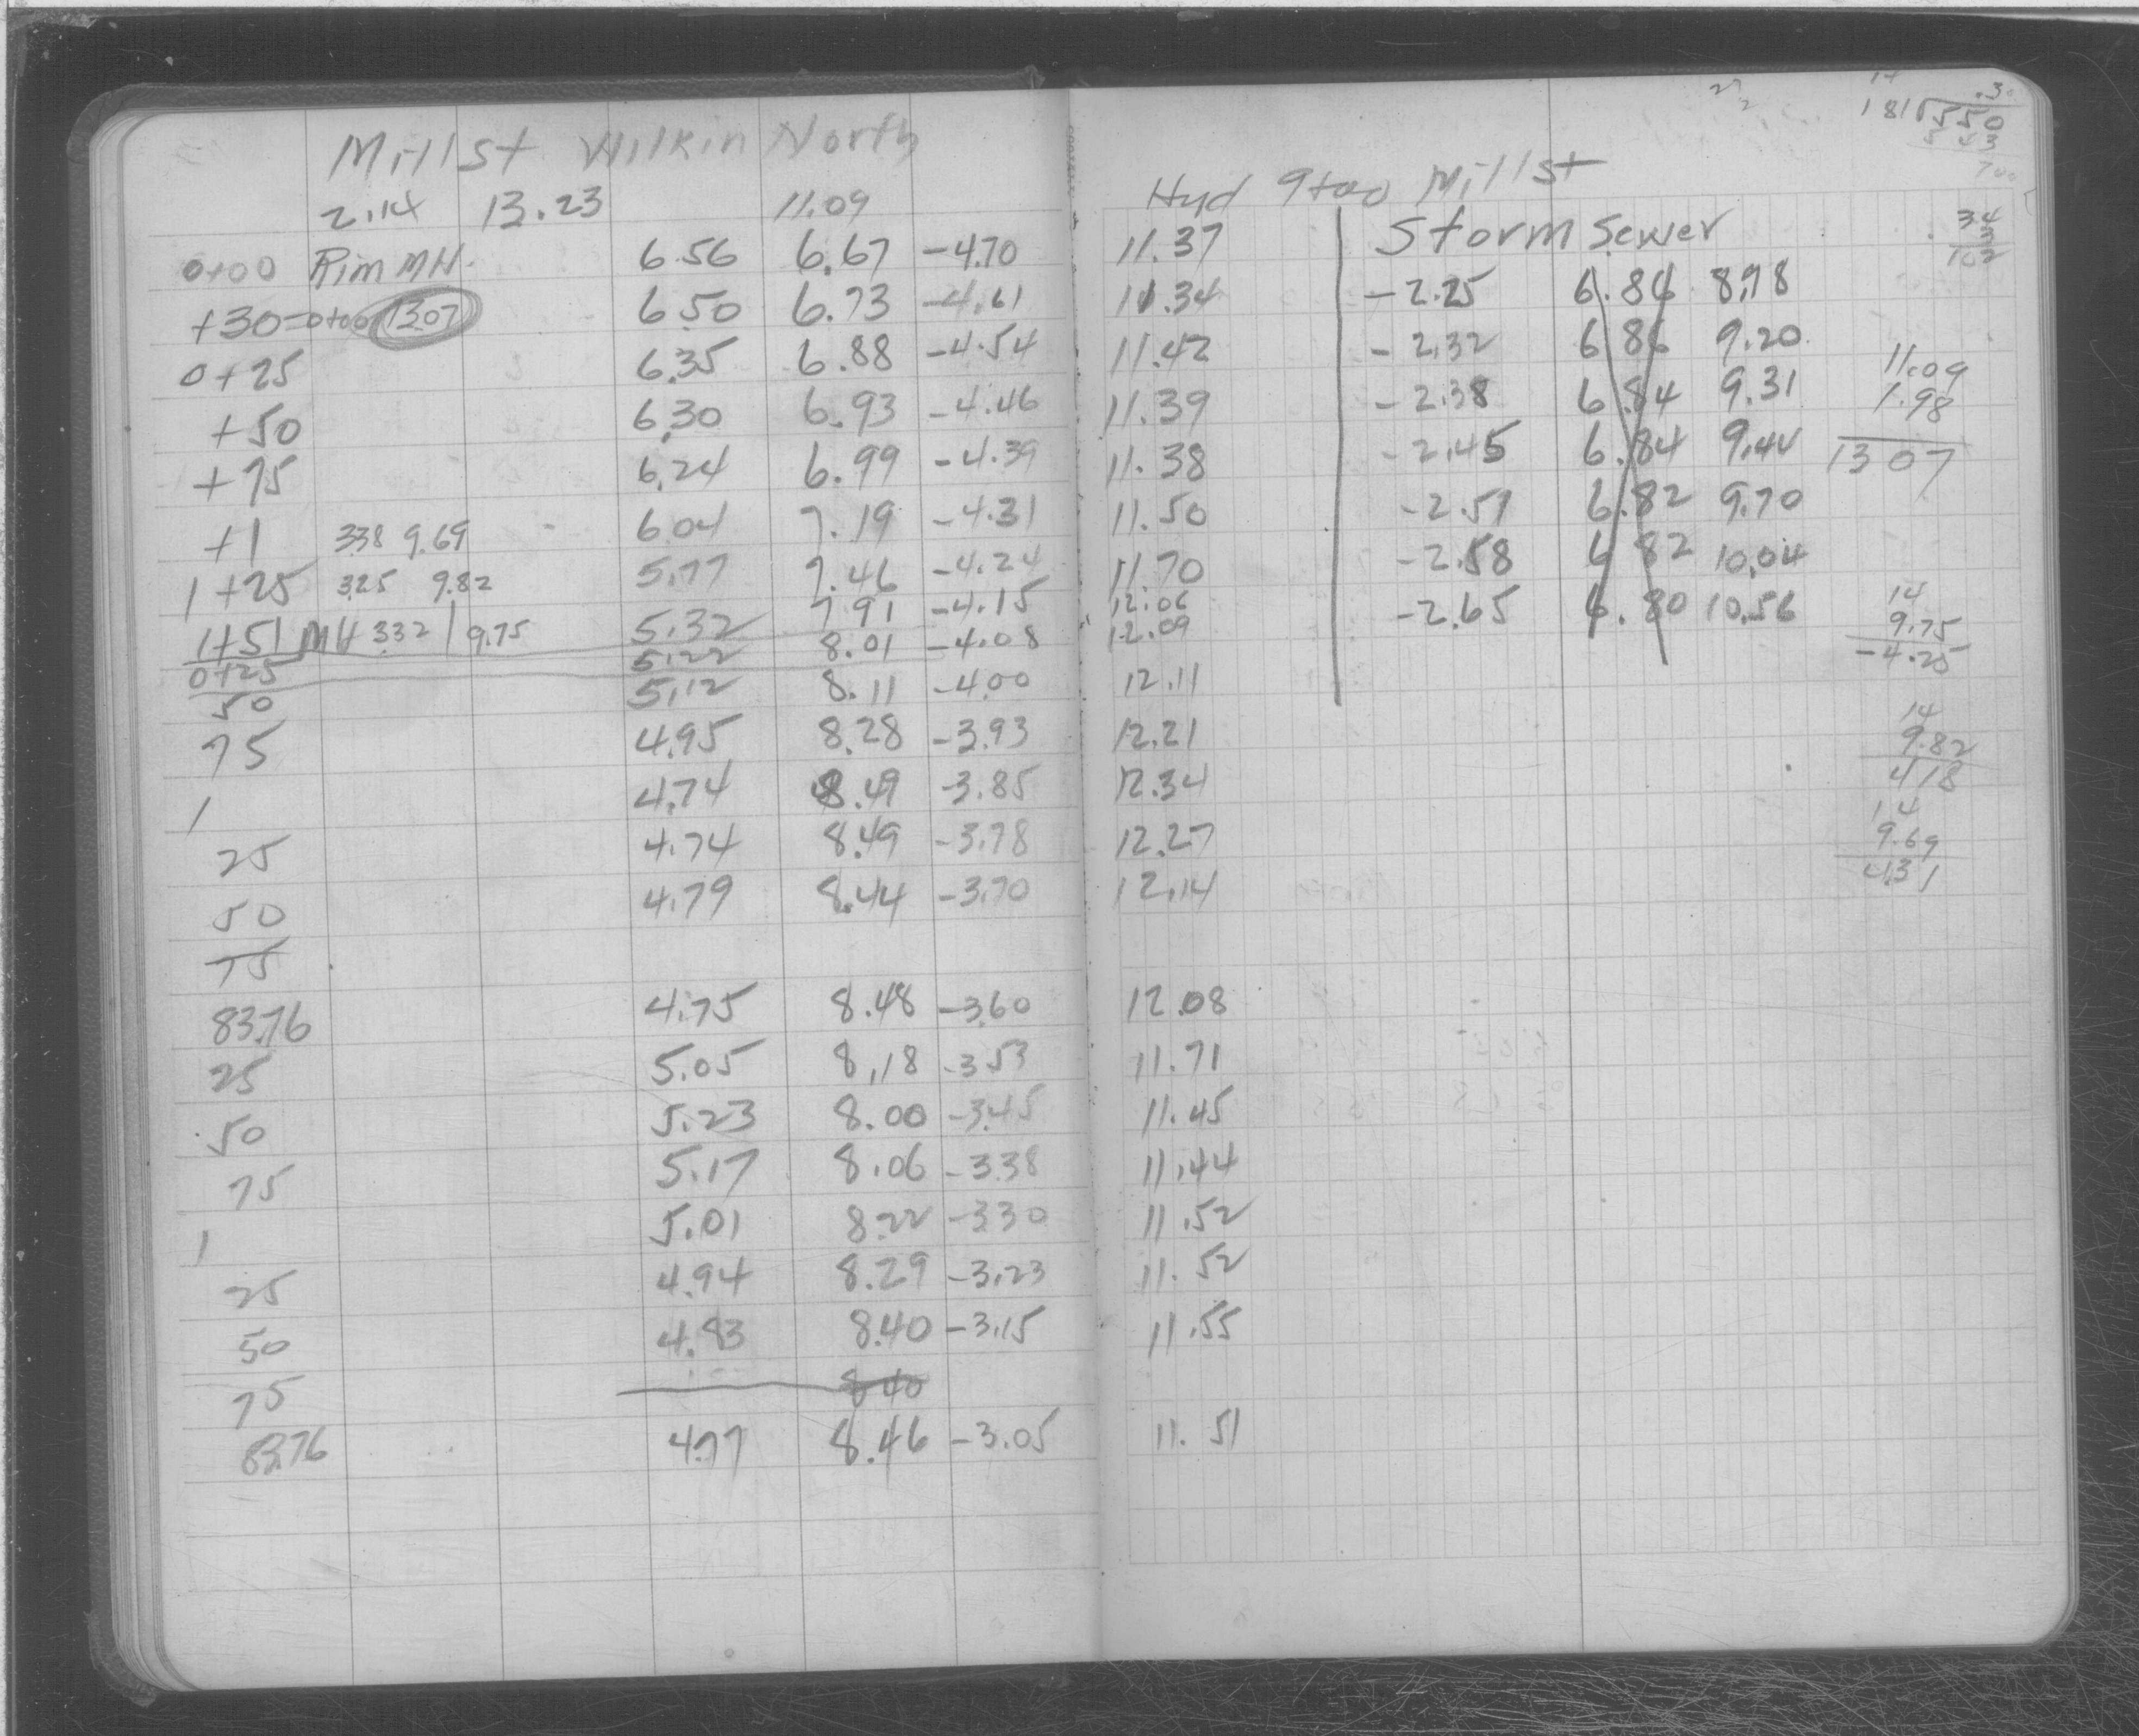 Mill St Wilkin North
2.14 13.23 11.09
0+00 Rim MH. 6.56 6.67 -4.70
+30=0+00 13.07 6.50 6.73 -4.61
0+25 6.35 6.88 -4.54
+50 6.30 6.93 -4.46
+75 6.24 6.99 -4.39
+1 3.38 9.69 6.04 7.19 -4.31
1+25 3.25 9.82 5.77 7.46 -4.24
1+51 MH 3.32 9.75 5.32 7.91 -4.15
0+25 5.22 8.01 -4.08
50 5.12 8.11 -4.00
75 4.95 8.28 -3.93
1 4.74 8.49 -3.85
25 4.74 8.49 -3.78
50 4.79 8.44 -3.70
75
83.76 4.75 8.48 -3.60
25 5.05 8.18 -3.53
50 5.23 8.00 -3.45
75 5.17 8.06 -3.38
1 5.01 8.22 -3.30
25 4.94 8.29 -3.23
50 4.83 8.40 -3.15
75 8.40
83.76 4.77 8.46 -3.05
Hyd 9+00 Mill St
11.37 Storm Sewer
11.34 -2.25 6.84 8.98
11.42 -2.32 6.86 9.20
11.39 -2.38 6.84 9.31
11.38 -2.45 6.84 9.44
11.50 -2.51 6.82 9.70
11.70 -2.58 6.82 10.04
12.06 -2.65 6.80 10.56
12.09
12.11
12.21
12.34
12.27
12.14
12.08
11.71
11.45
11.44
11.52
11.52
11.55
11.51
.3
181 550
543
34
3
102
11.09
1.98
13 07
14
9.75
-4.25
14
9.82
4 18
14
9.69
4.31